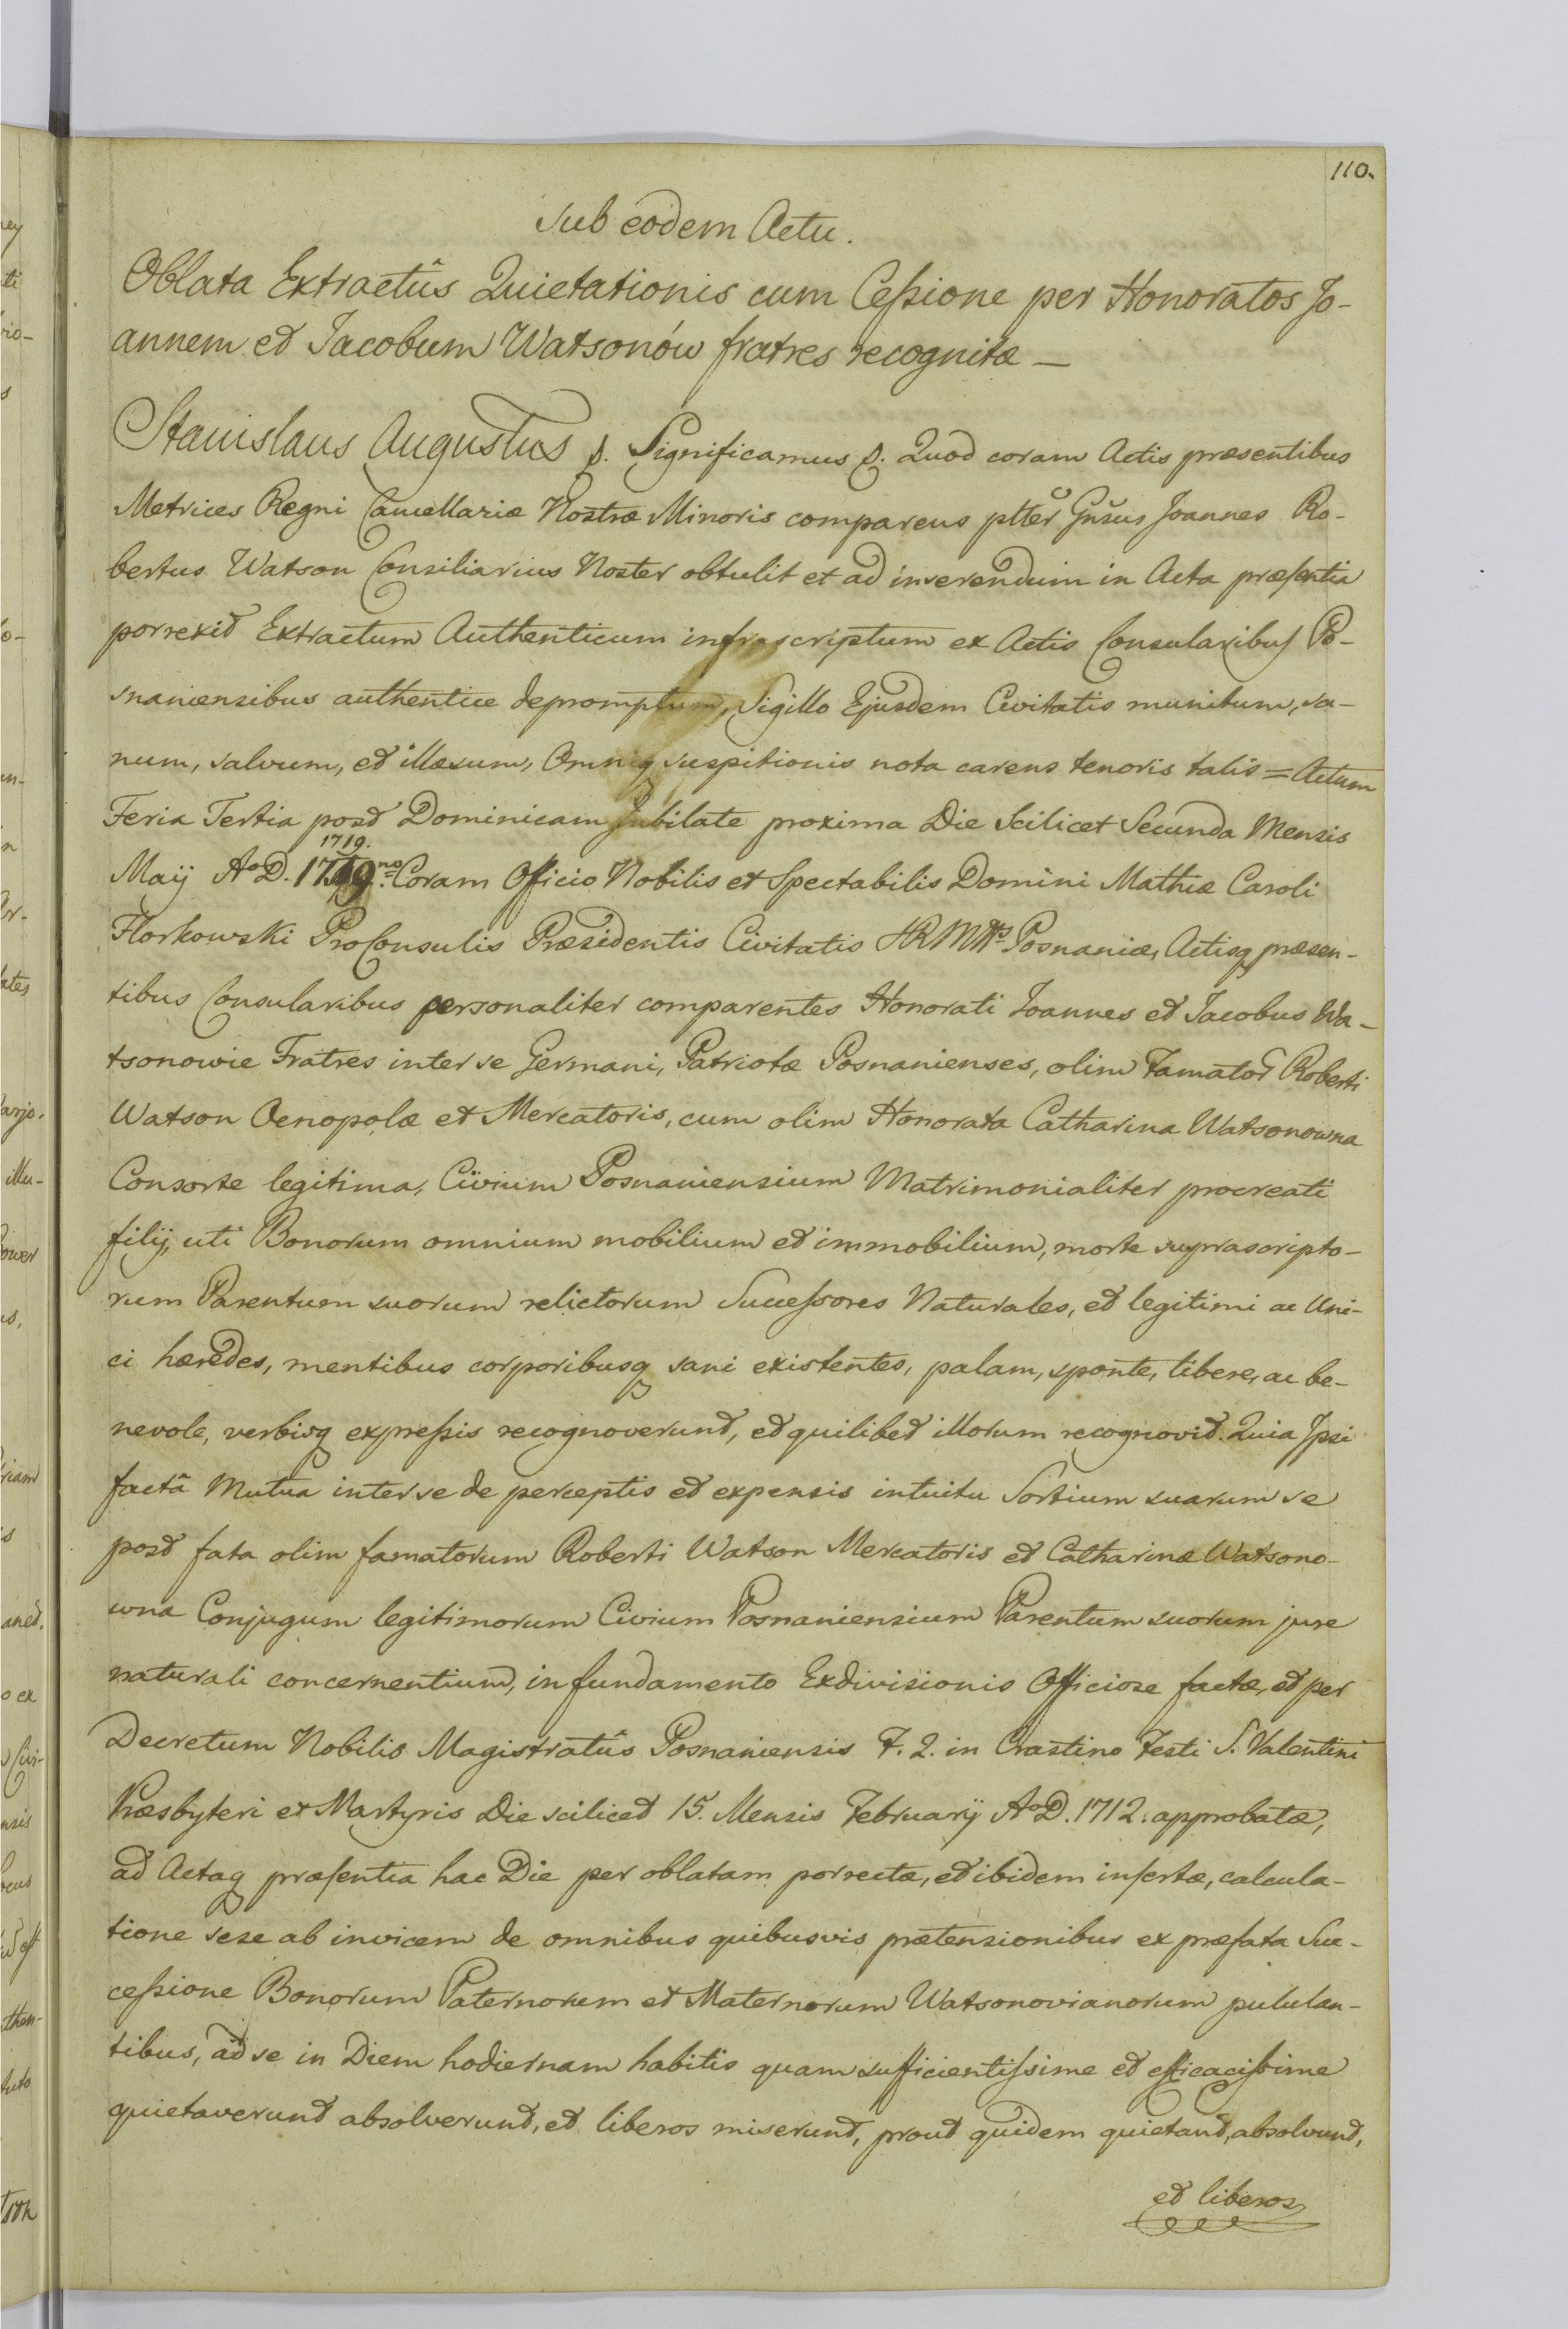 110.
Sub eodem Actu.
Oblata Extractûs Quietationis cum Cessione per Honoratos Jo-
annem et Jacobum Watsonów fratres recognitæ —
Stanislaus Augustus &. Significamus &. Quod coram Actis præsentibus
Metrices Regni Cancellariæ Nostræ Minoris comparens pltter Gnsus Joannes Ro-
bertus Watson Consiliarius Noster obtulit et ad inserendum in Acta præsentia
porrexit Extractum Authenticum infrascriptum ex Actis Consularibus Po-
snaniensibus authentice depromptum, Sigillo Ejusdem Civitatis munitum, sa-
num, salvum, et illæsum, Omniq suspitionis nota carens tenoris talis = Actum
Feria Tertia post Dominicam Jubilate proxima Die Scilicet Secunda Mensis
1719.
Maij Ao D. 1719no Coram Officio Nobilis et Spectabilis Domini Mathiæ Caroli
Florkowski ProConsulis Præsidentis Civitatis SRMttis Posnaniæ, Actisq præsen-
tibus Consularibus personaliter comparentes Honorati Joannes et Jacobus Wa-
tsonowie Fratres inter se Germani, Patriotæ Posnanienses, olim Famator Roberti
Watson Oenopolæ et Mercatoris, cum olim Honorata Catharina Watsonowna
Consorte legitima, Civium Posnaniensium Matrimonialiter procreati
filij, uti Bonorum omnium mobilium et immobilium, morte suprascripto-
rum Parentum suorum relictorum Successores Naturales, et legitimi ac Uni-
ci hæredes, mentibus corporibusq sani existentes, palam, sponte, libere, ac be-
nevole, verbisq expressis recognoverunt, et quilibet illorum recognovit. Quia Ipsi
factâ Mutua inter se de perceptis et expensis intuitu Sortium suarum se
post fata olim famatorum Roberti Watson Mercatoris et Catharinæ Watsono-
wna Conjugum legitimorum Civium Posnaniensium Parentum suorum jure
naturali concernentium, in fundamento Exdivisionis Officiose factæ, et per
Decretum Nobilis Magistratûs Posnaniensis F. 2. in Crastino Festi S. Valentini
Præsbyteri et Martyris Die scilicet 15. Mensis Februarij Ao D. 1712. approbatæ,
ad Actaq præsentia hac Die per oblatam porrectæ, et ibidem insertæ, calcula-
tione sese ab invicem de omnibus quibusvis prætensionibus ex præfata Suc-
cessione Bonorum Paternorum et Maternorum Watsonovianorum pululan-
tibus, ad se in Diem hodiernam habitis quam sufficientissime et efficacissime
quietaverunt absolverunt, et liberos miserunt, prout quidem quietant, absolvunt,
et liberos